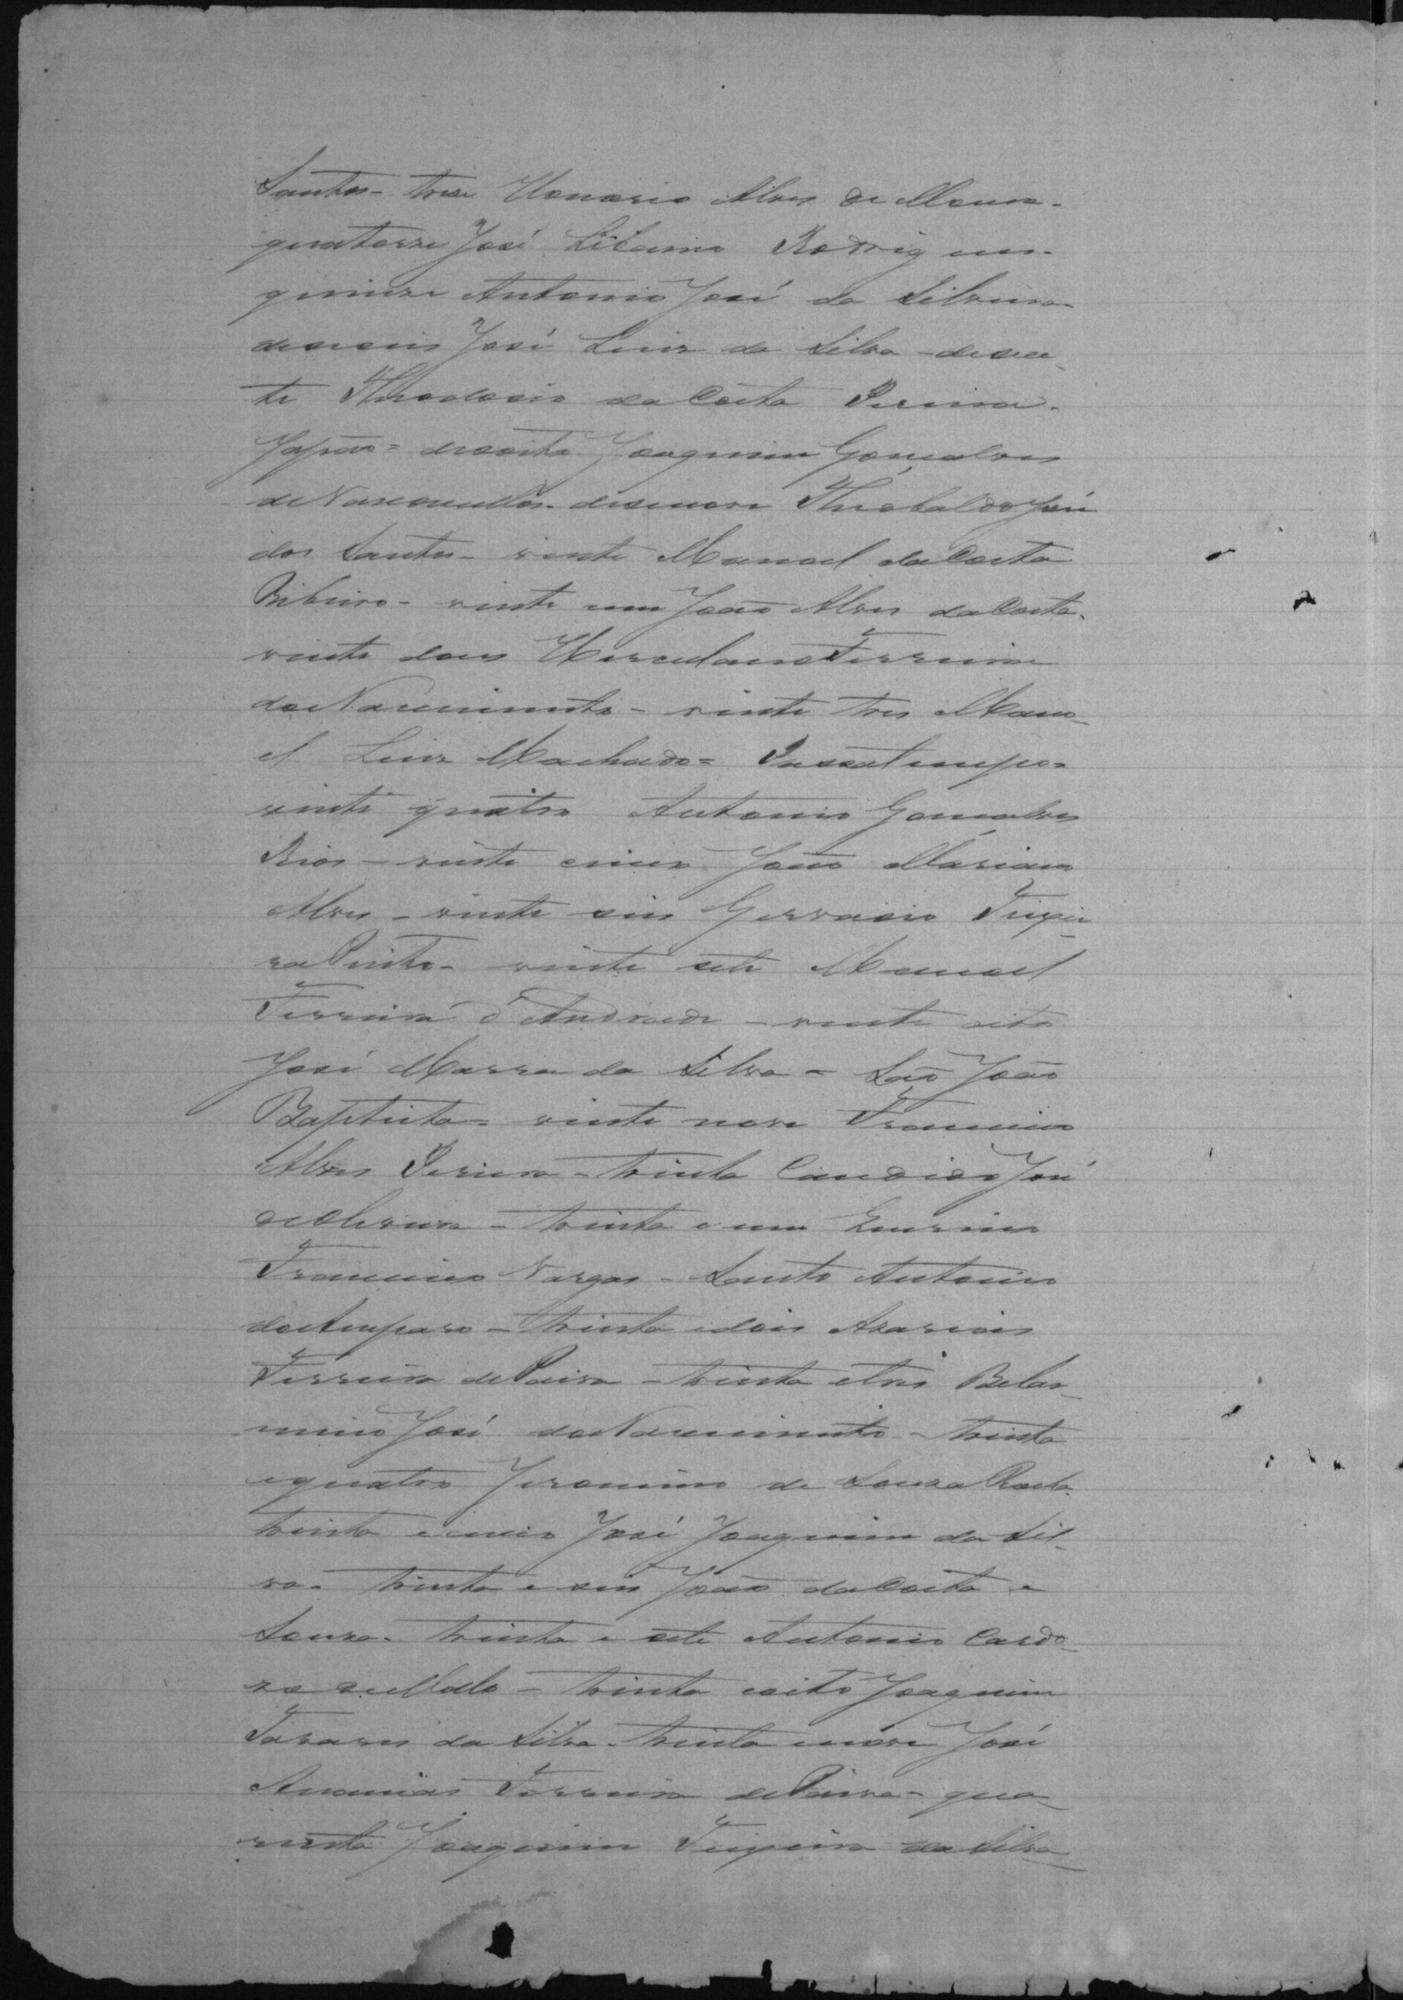 Santos - trese Honorio Alves de Moura -
quatorze José Libanio Rodrigues -
quinze Antonio José da Silveira -
deseseis José Luiz da Silva - desese
te Theodosio da Costa Pereira -
Japão = desoito Joaquim Gonçalves
de Vasconcellos - desenove Theobaldo José
dos Santos - vinte Manoel da Costa
Ribeiro - vinte um João Alves da Costa -
vinte dous Herculano Ferreira
do Nascimento - vinte tres Mano
el Luiz Machado = Passatempo =
vinte quatro Antonio Gonçalves
Rios - vinte cinco João Mariano
Alves - vinte seis Gervasio Teixei
ra Pinto - vinte sete Manoel
Ferreira d'Andrade - vinte oito
José Marra da Silva = São João
Baptista = vinte nove Francisco
Alves Pereira - trinta Candido José
de Oliveira - trinta e um
Francisco Vargas - Santo Antonio
do Amparo - trinta e dois Azarias
Ferreira de Paiva - trinta e tres Belar
mino José do Nascimento - trinta
e quatro Jeronimo de Souza
trinta e cinco José Joaquim da Sil
va - trinta e seis João da Costa e
Souza - trinta e sete Antonio Cardo
zo de Mello - trinta e oito Joaquim
Tavares da Silva - trinta e nove José
Ananias Ferreira de Paiva - qua
renta Joaquim Teixeira da Silva